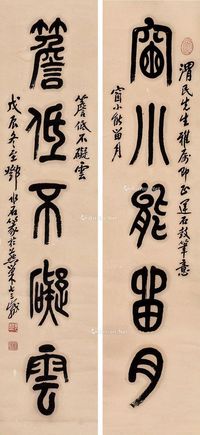 渭民先生雅属即正運石鼓筆意
窗小能畱月
窗小能留月
簷低不礙雲
簷低不礙雲
戊辰冬至鄧石篆於燕